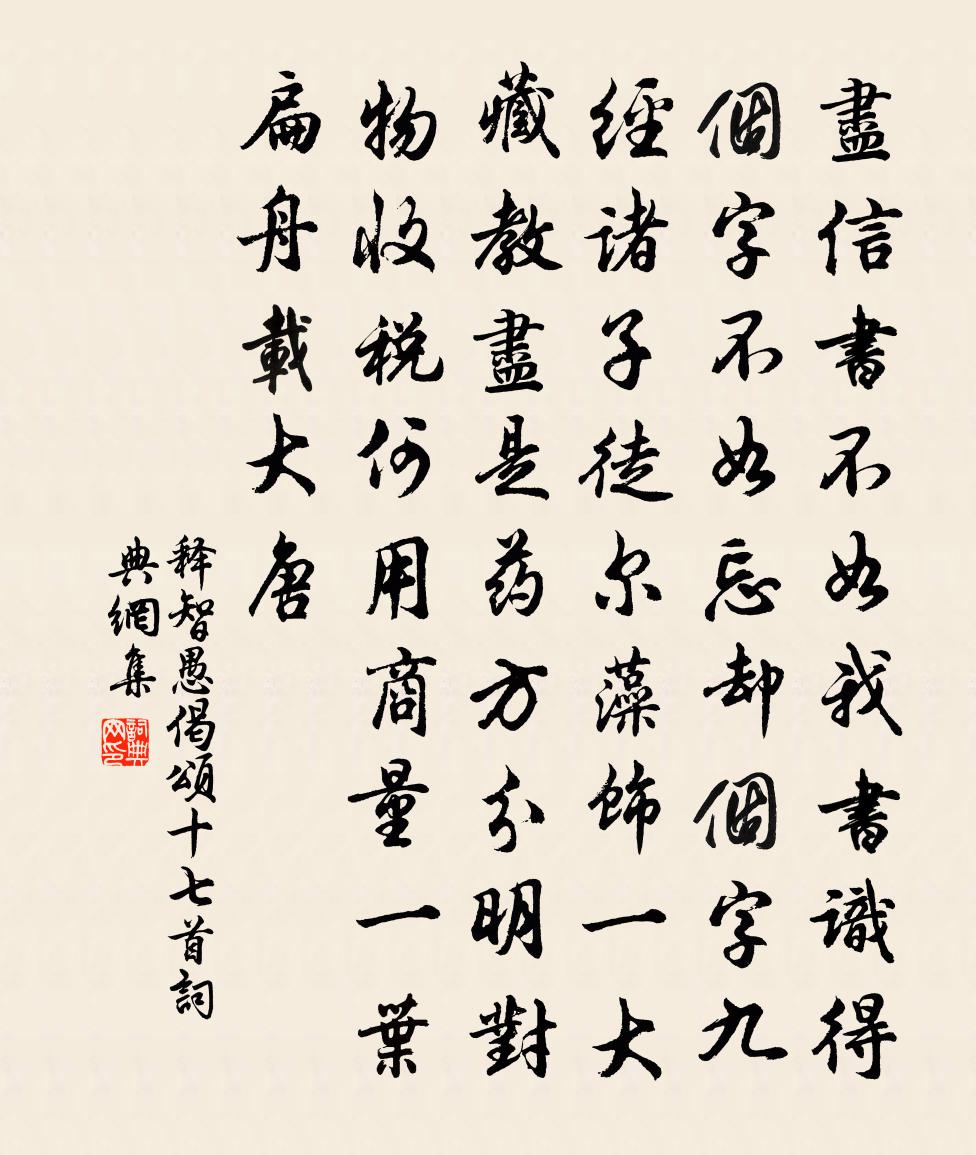 盡信書不如我書識得
個字不如忘却個字九
經諸子徒尔藻飾一大
藏教盡是药方分明對
物收税何用商量一葉
扁舟載大唐
释智愚偈頌十七首詞
典網集
詞典
网印